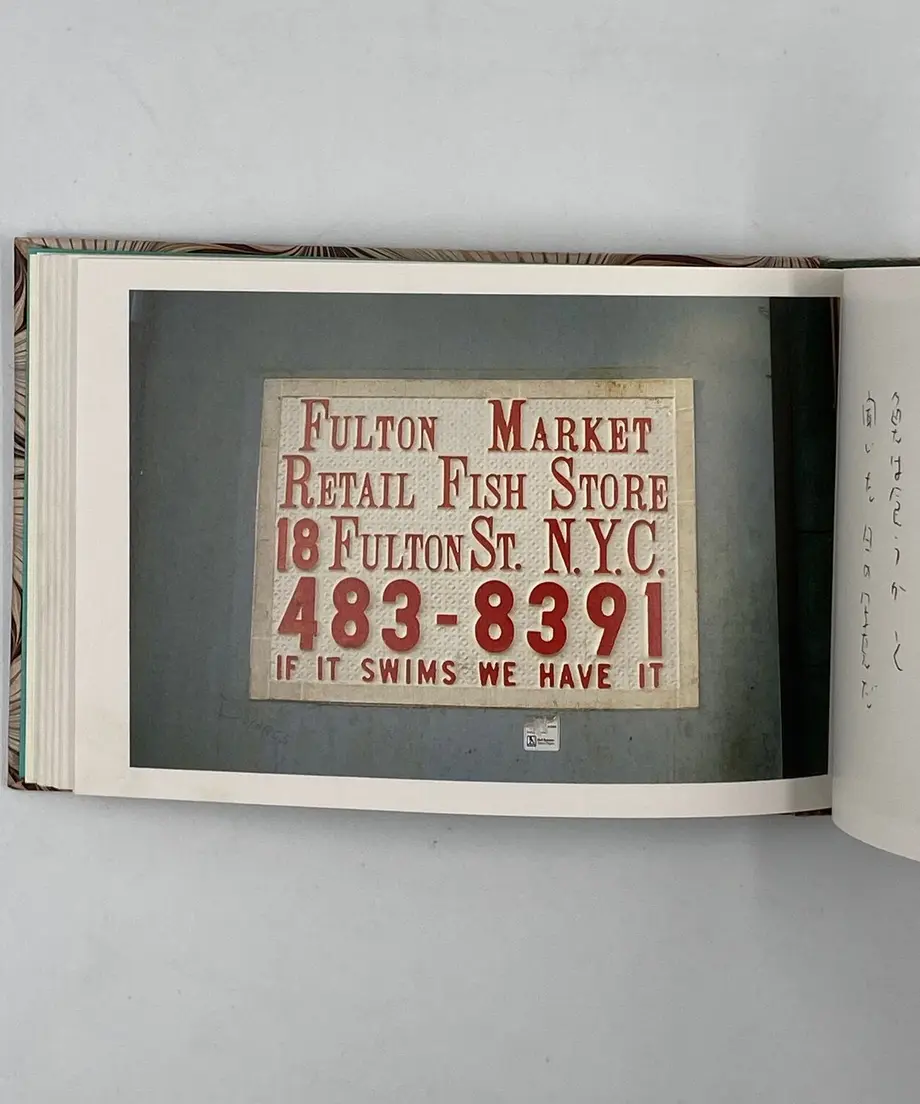 FULTON MARKET
RETAIL FISH STORE
18 FULTON ST. N.Y.C.
483-8391
IF IT SWIMS WE HAVE IT